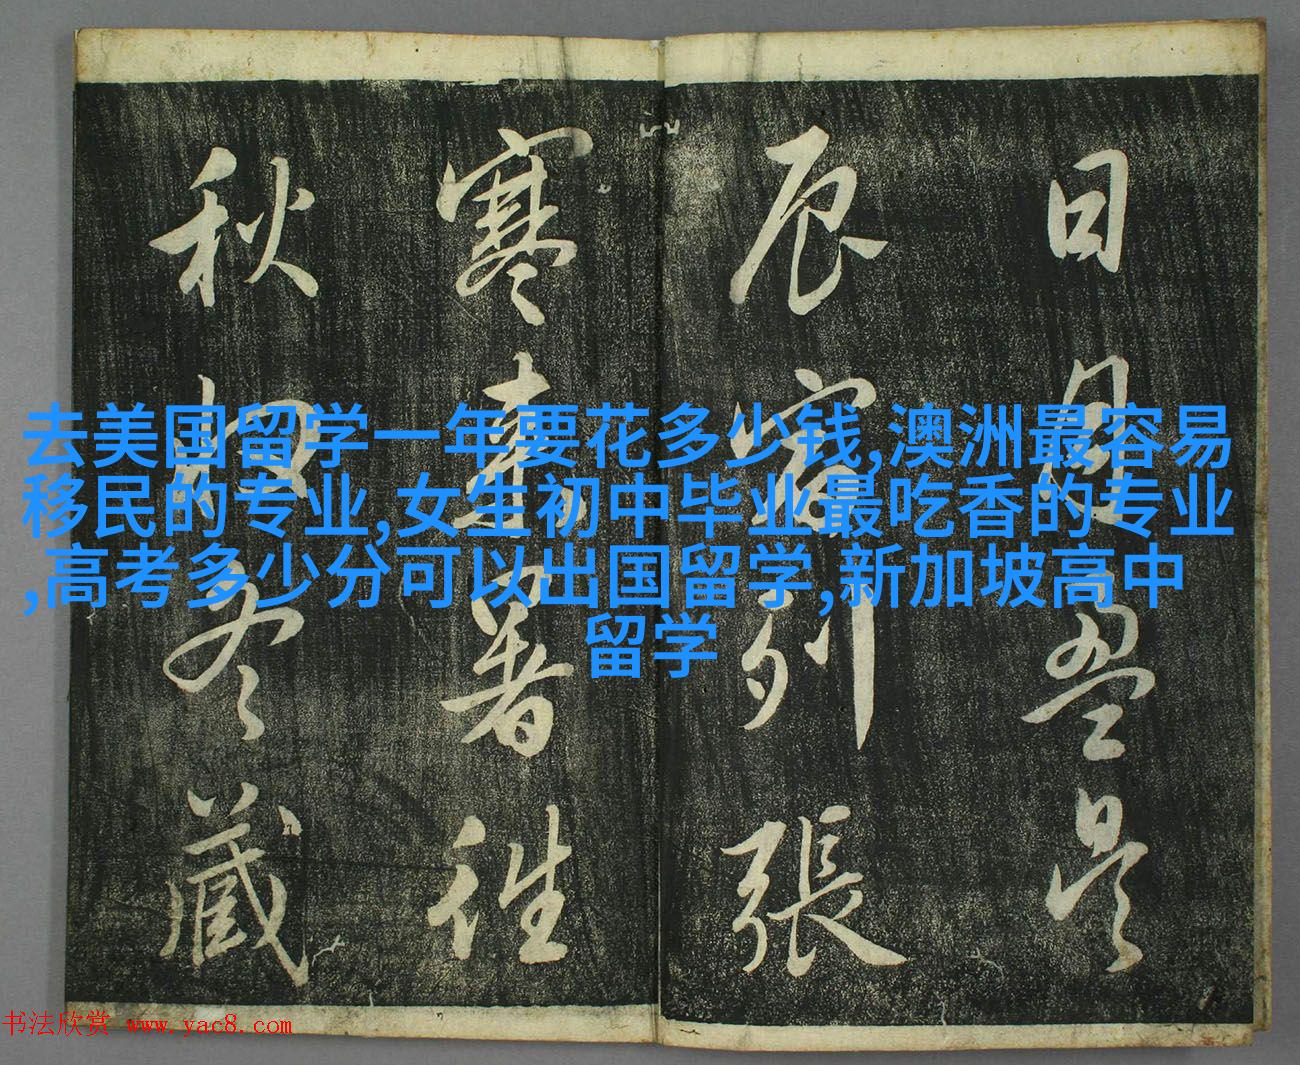 日月盈昃
辰宿列張
寒来暑往
秋收冬藏
去美国留学一年要花多少钱,澳洲最容易
移民的专业,女生初中毕业最吃香的专业
,高考多少分可以出国留学,新加坡高中
留学
书法欣赏 www.yac8.com